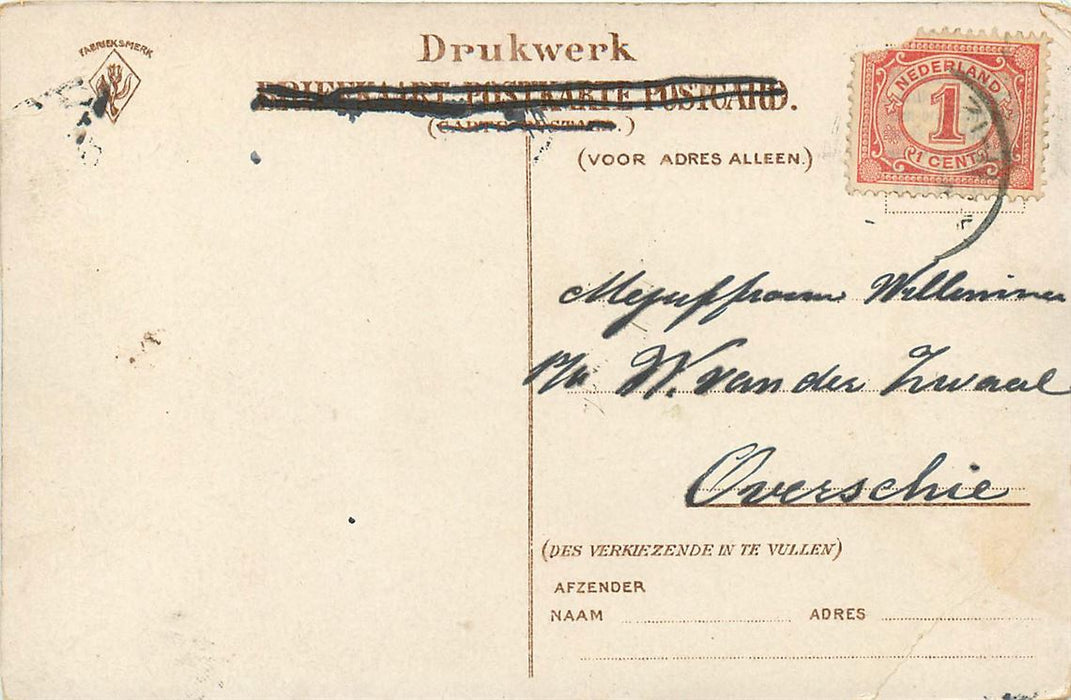 FABRIEKSMERK
Drukwerk
BRIEFKAART POSTKARTE POSTCARD.
(CARTE POSTALE.)
(VOOR ADRES ALLEEN.)
NEDERLAND
1
1 CENT
Mejuffrouw
p/a W. van der Zwaal
Overschie
(DES VERKIEZENDE IN TE VULLEN)
AFZENDER
NAAM ADRES